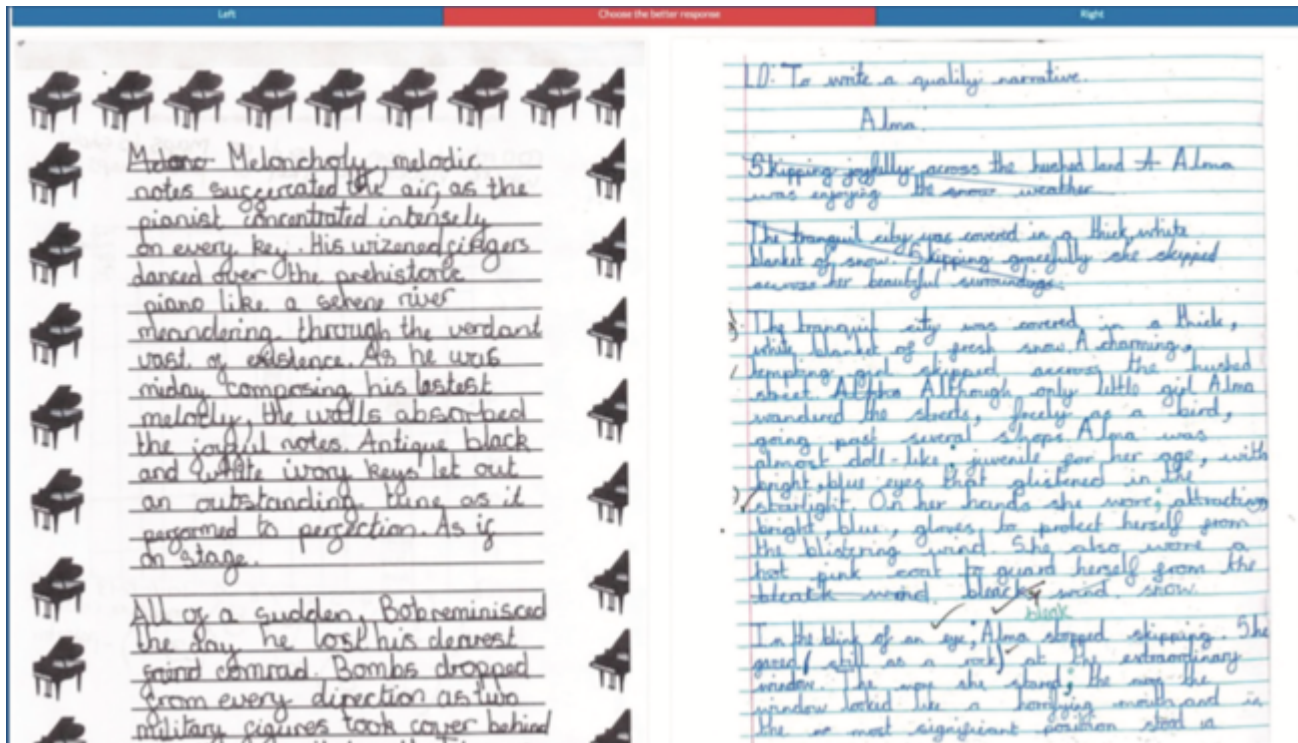 Left
Choose the better response
Right
Melanc Meloncholy, melodic
notes suggercated the air, as the
pianist concentrated intensely
on every key. His wizened fingers
danced over the prehistoric
piano like a serene river
meandering through the verdant
vast of existence. As he was
miday composing his lastest
melody, the walls absorbed
the joyful notes. Antique black
and white ivory keys let out
an outstanding tune as it
performed to perfection. As if
on stage.
All of a sudden, Bob reminisced
the day he lost his dearest
comrad. Bombs dropped
from every direction as two
military figures took cover behind
LO: To write a quality narrative.
Alma.
Skipping joyfully across the hushed land A Alma
was enjoying the snow weather
The tranquil city was covered in a thick, white
blanket of snow. Skipping gracefully she skipped
across her beautiful surroundings.
The tranquil city was covered in a thick,
white blanket of fresh snow. A charming,
tempting girl skipped across the hushed
street. Although only little girl Alma
wandered the streets, freely as a bird,
going past several shops. Alma was
almost doll-like; juvenile for her age, with
bright, blue eyes that glistened in the
starlight. On her hands she wore; attracting
bright, blue, gloves, to protect herself from
the blistering wind. She also wore a
hot pink coat to guard herself from the
wind. snow.
bleak
In the blink of an eye; Alma stopped skipping. She
gazed (still as a rock) at the extraordinary
window. The more she stared; the more the
window looked like a horrifying mouth and in
the most significant position stood a